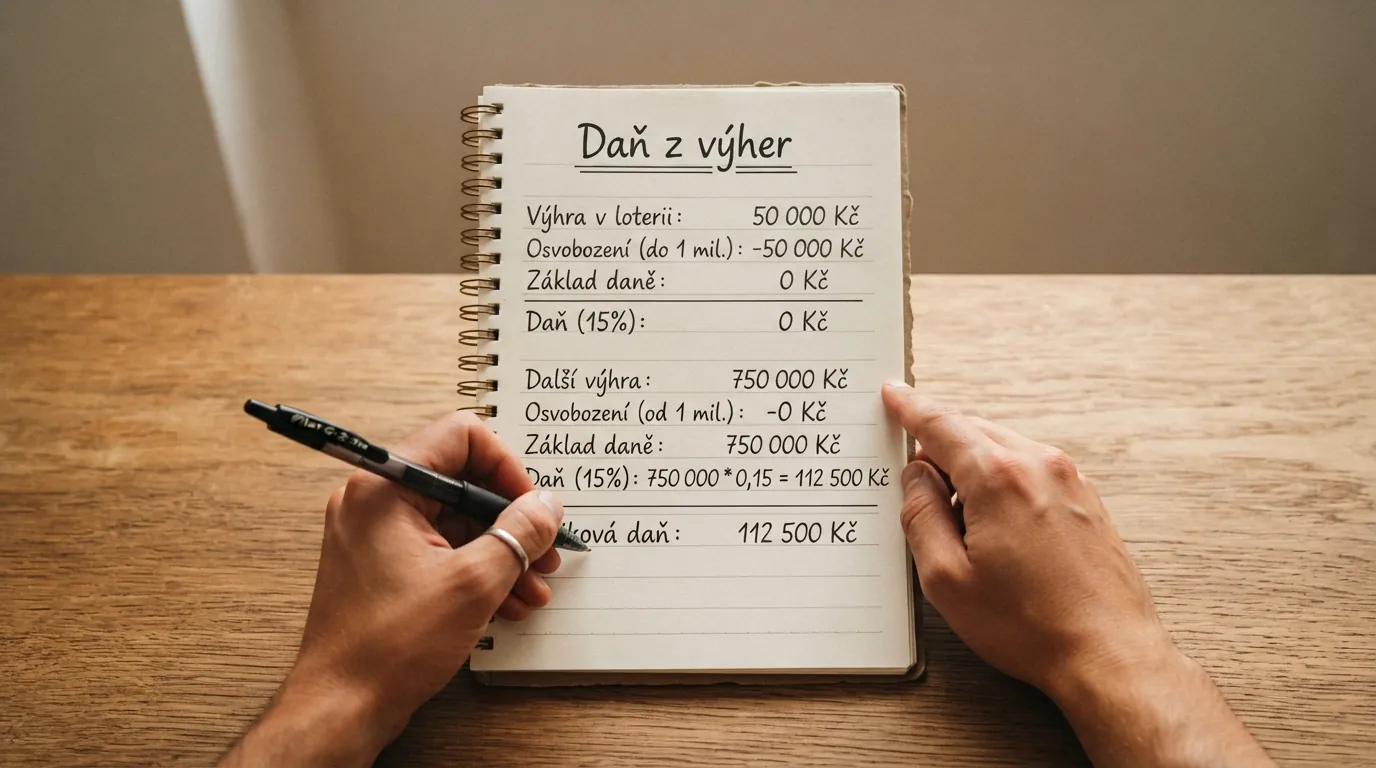 Daň z výher
Výhra v loterii: 50 000 Kč
Osvobození (do 1 mil.): -50 000 Kč
Základ daně: 0 Kč
Daň (15%): 0 Kč
Další výhra: 750 000 Kč
Osvobození (od 1 mil.): -0 Kč
Základ daně: 750 000 Kč
Daň (15%): 750 000 * 0,15 = 112 500 Kč
daň: 112 500 Kč